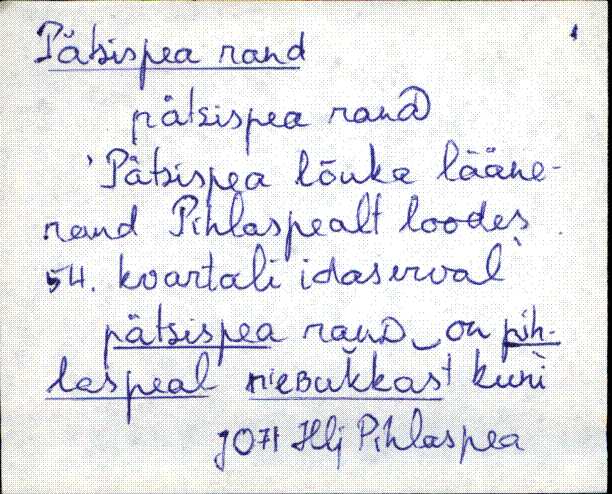 Pätsispea rand
pätsispea ranD
'Pätsispea lõuka lääne-
rand Pihlaspealt loodes
54. kvartali idaserval'
pätsispea ranD‿on pih-
laspeal nieBuk̆kast kuni
JO71 Hlj Pihlaspea